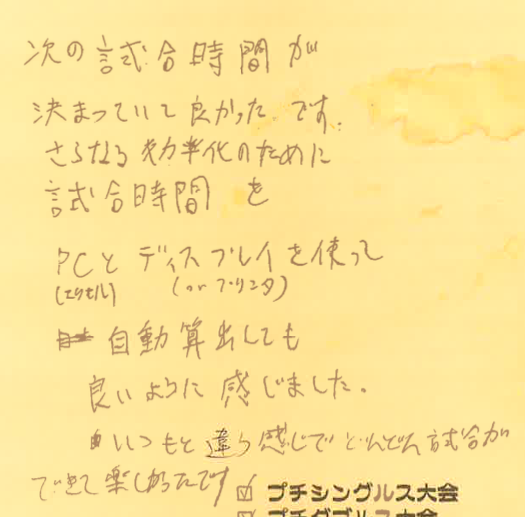 次の試合時間が
決まっていて良かったです。
さらなる効率化のために
試合時間を
PCとディスプレイを使って
(エクセル) (orプリンタ)
自動算出しても
良いように感じました。
いつもと違う感じでどんどん試合が
できて楽しかったです
☑ プチシングルス大会
☑ プチダブルス大会